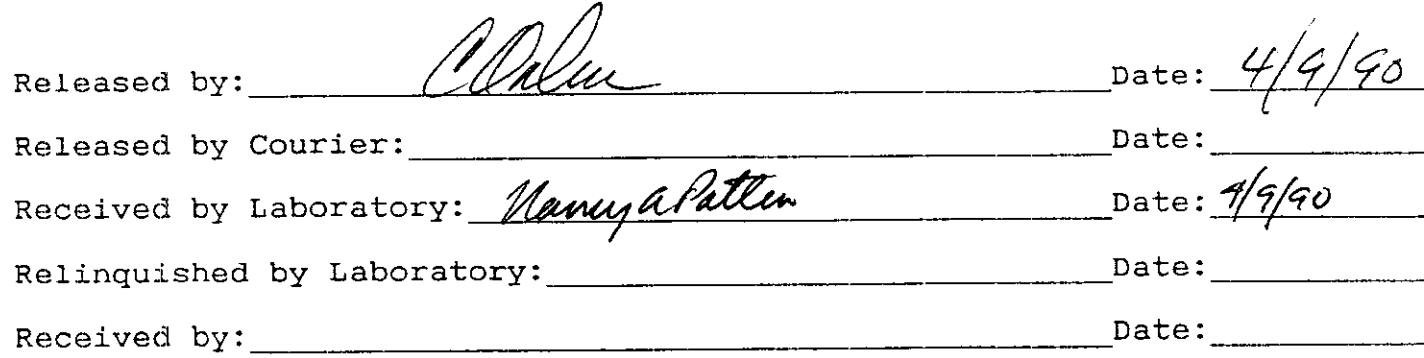 Released by: Date: 4/9/90
Released by Courier: Date:
Received by Laboratory: Nancy A Patten Date: 4/9/90
Relinquished by Laboratory: Date:
Received by: Date: